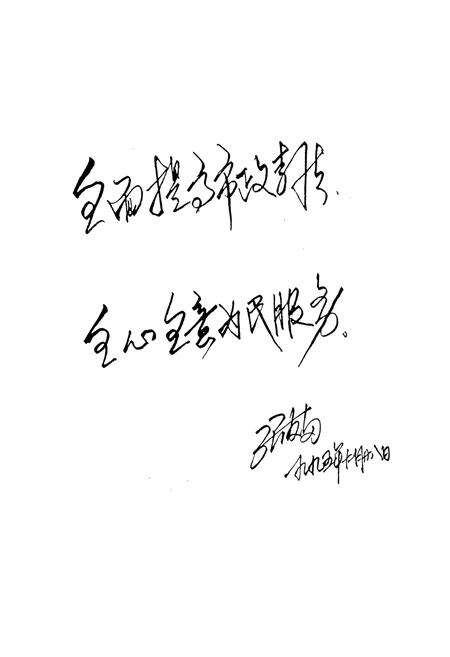 全面提高市政
全心全意为民服务。
张
一九九五年十月廿八日